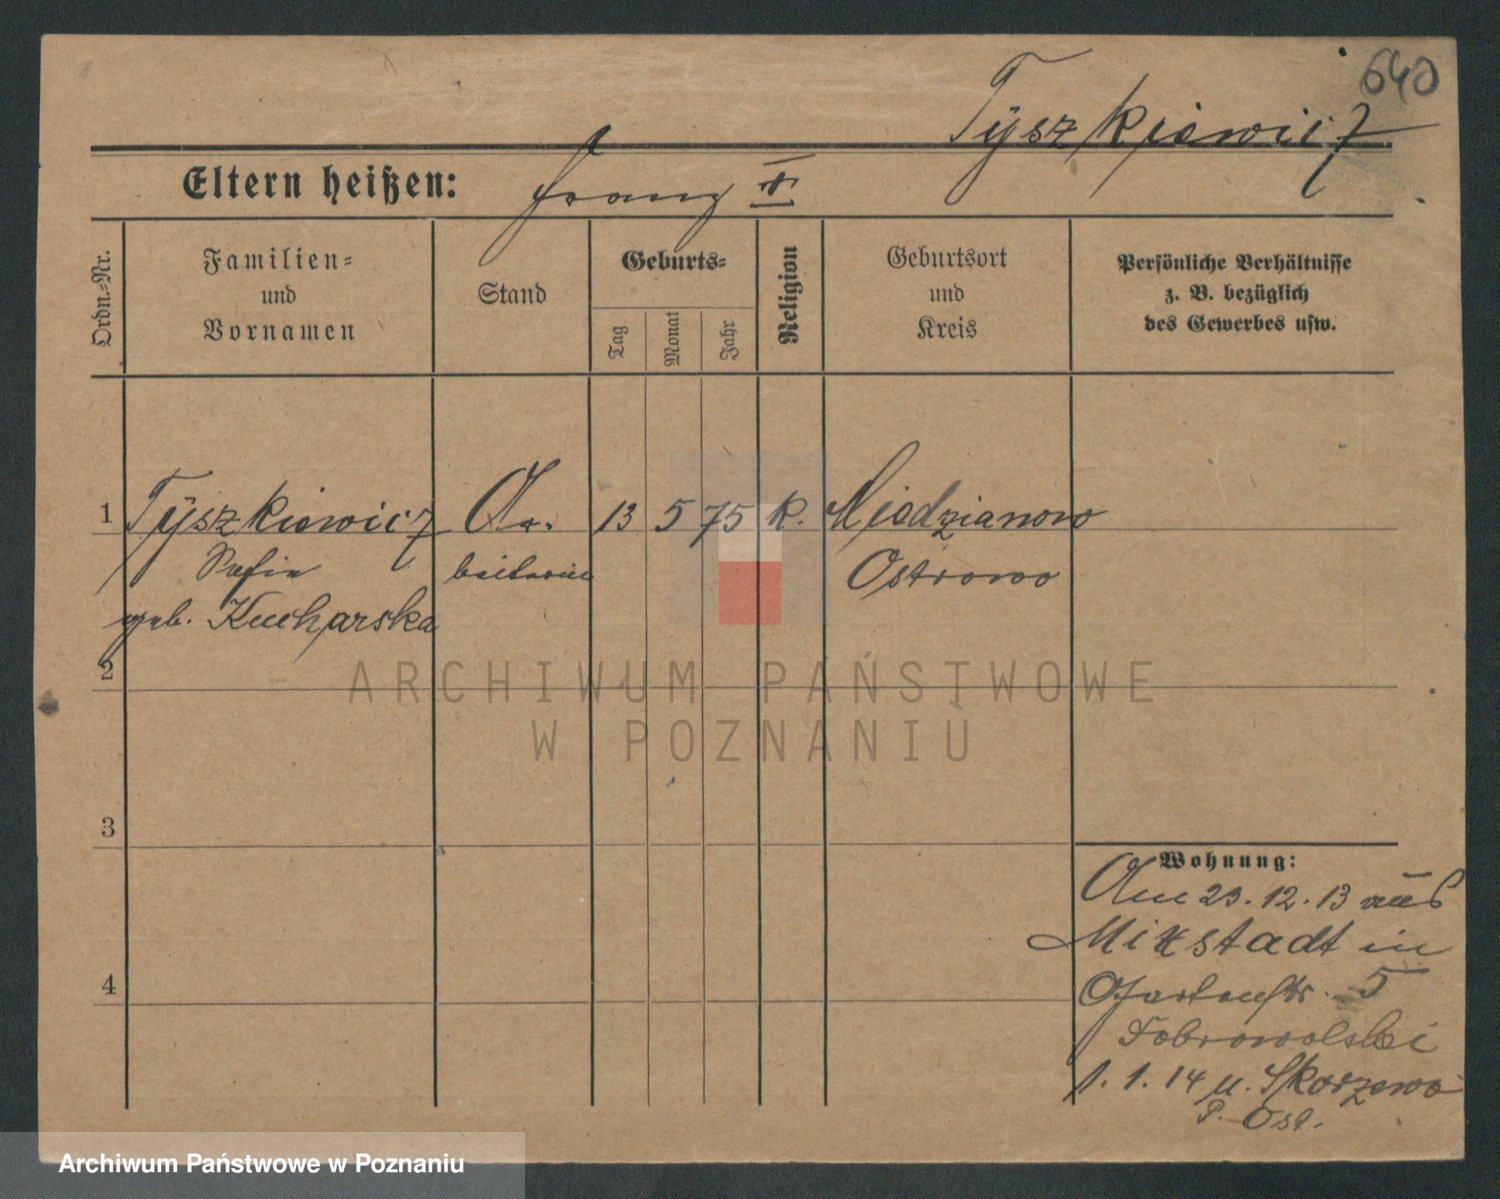 640
Tyszkiewicz
Eltern heißen: Franz II
Ordn.-Nr.
Familien-
und
Vornamen
Stand
Geburts-
Tag
Monat
Jahr
Religion
Geburtsort
und
Kreis
Persönliche Verhältnisse
z. B. bezüglich
des Gewerbes usw.
1 Tyszkiewicz Ar- 13 5 75 k. Miedzianowo
Sofie beiterin Ostrowo
geb. Kucharska
2
ARCHIWUM PAŃSTWOWE
W POZNANIU
3
Wohnung:
Am 23.12.13 aus
Mixstadt in
4
Gartenstr. 5
Dobrowolski
1.1.14 n. Skorzewo
P. Ost.
Archiwum Państwowe w Poznaniu